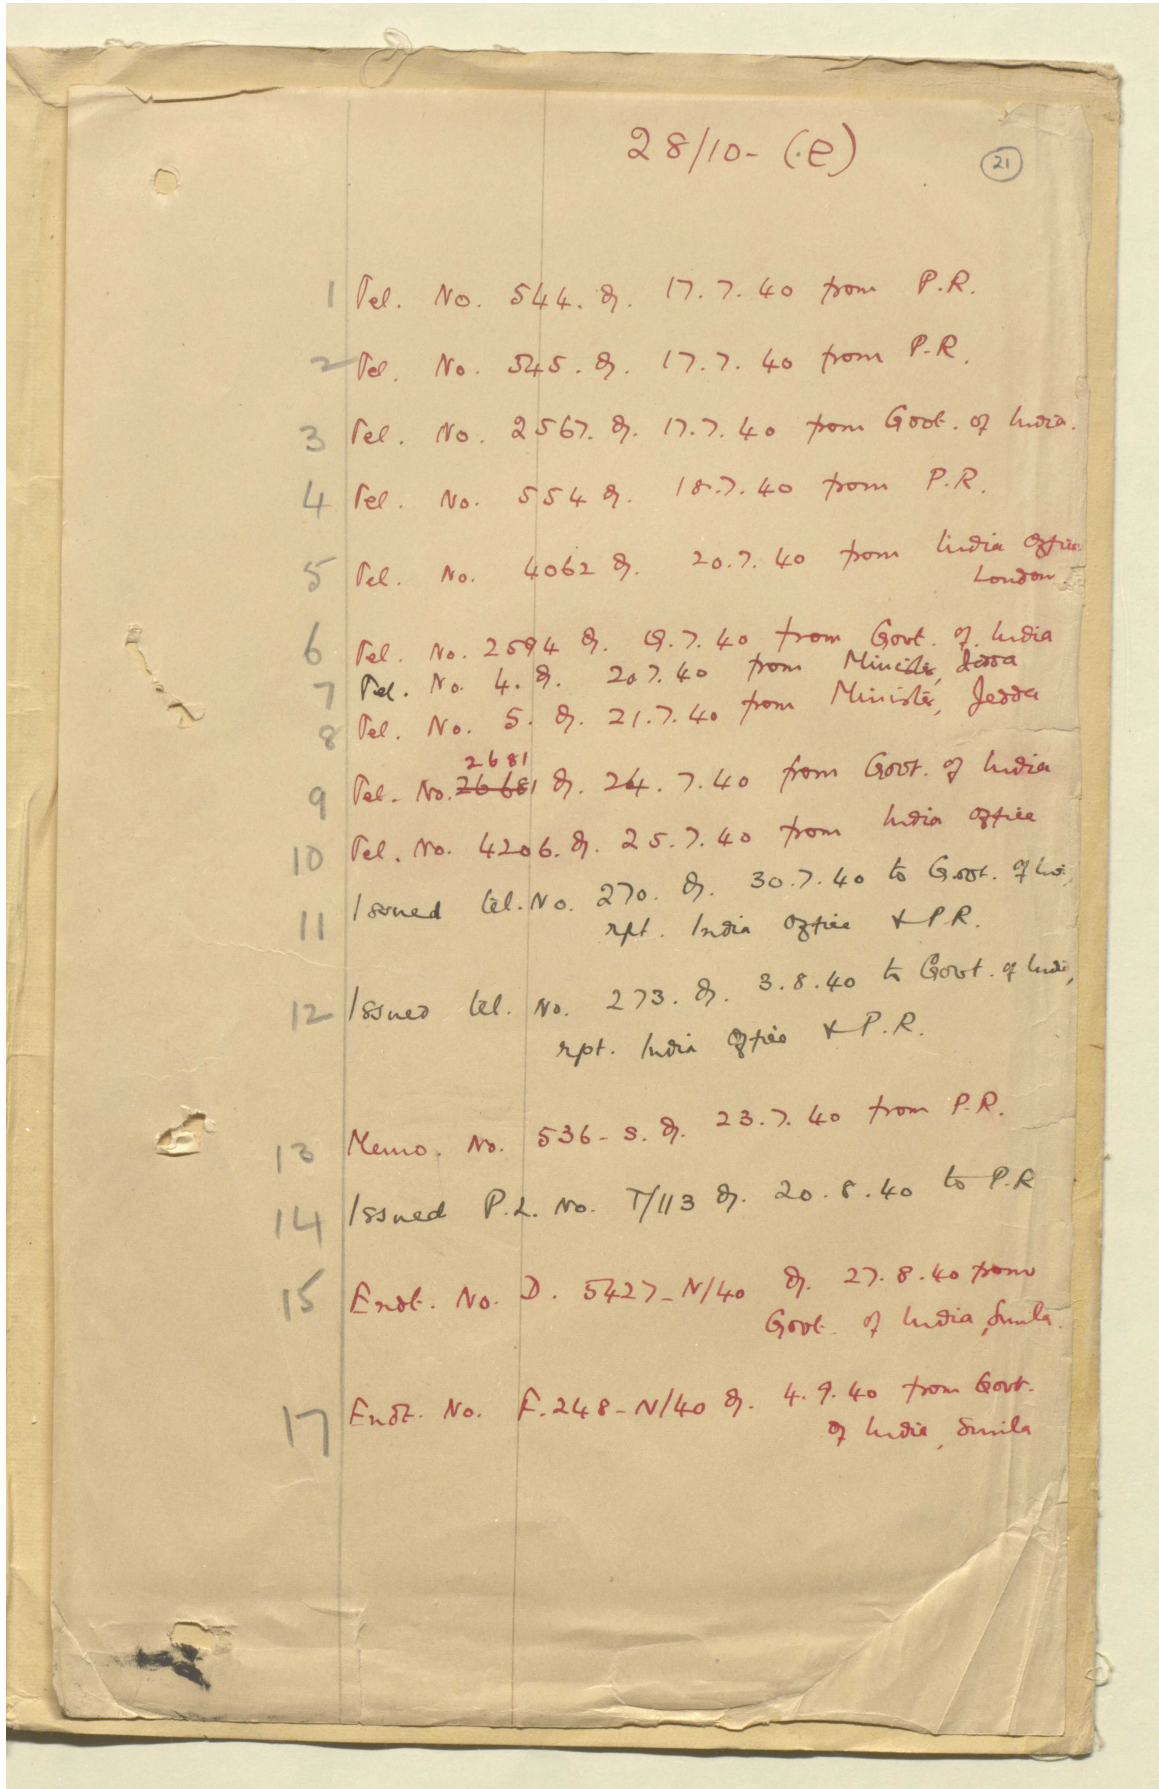 28/10- (.e)
21
1 Tel. No. 544. d. 17.7.40 from P.R.
2 Tel. No. 545. d. 17.7.40 from P.R.
3 Tel. No. 2567. d. 17.7.40 from Govt. of India.
4 Tel. No. 554 d. 18.7.40 from P.R.
5 Tel. No. 4062 d. 20.7.40 from India Office
London.
6 Tel. No. 2594 d. 19.7.40 from Govt. of India
7 Tel. No. 4. d. 20.7.40 from Minister, Jedda
8 Tel. No. 5. d. 21.7.40 from Minister, Jedda
2681
9 Tel. No. 26681 d. 24.7.40 from Govt. of India
10 Tel. No. 4206. d. 25.7.40 from India Office
11 Issued tel. No. 270. d. 30.7.40 to Govt. of India,
rpt. India Office & P.R.
12 Issued tel. No. 273. d. 3.8.40 to Govt. of India,
rpt. India Office & P.R.
13 Memo. No. 536-S. d. 23.7.40 from P.R.
14 Issued P.L. No. T/113 d. 20.8.40 to P.R
15 Endt. No. D. 5427-N/40 d. 27.8.40 from
Govt. of India, Simla.
17 Endt. No. F.248-N/40 d. 4.9.40 from Govt.
of India, Simla